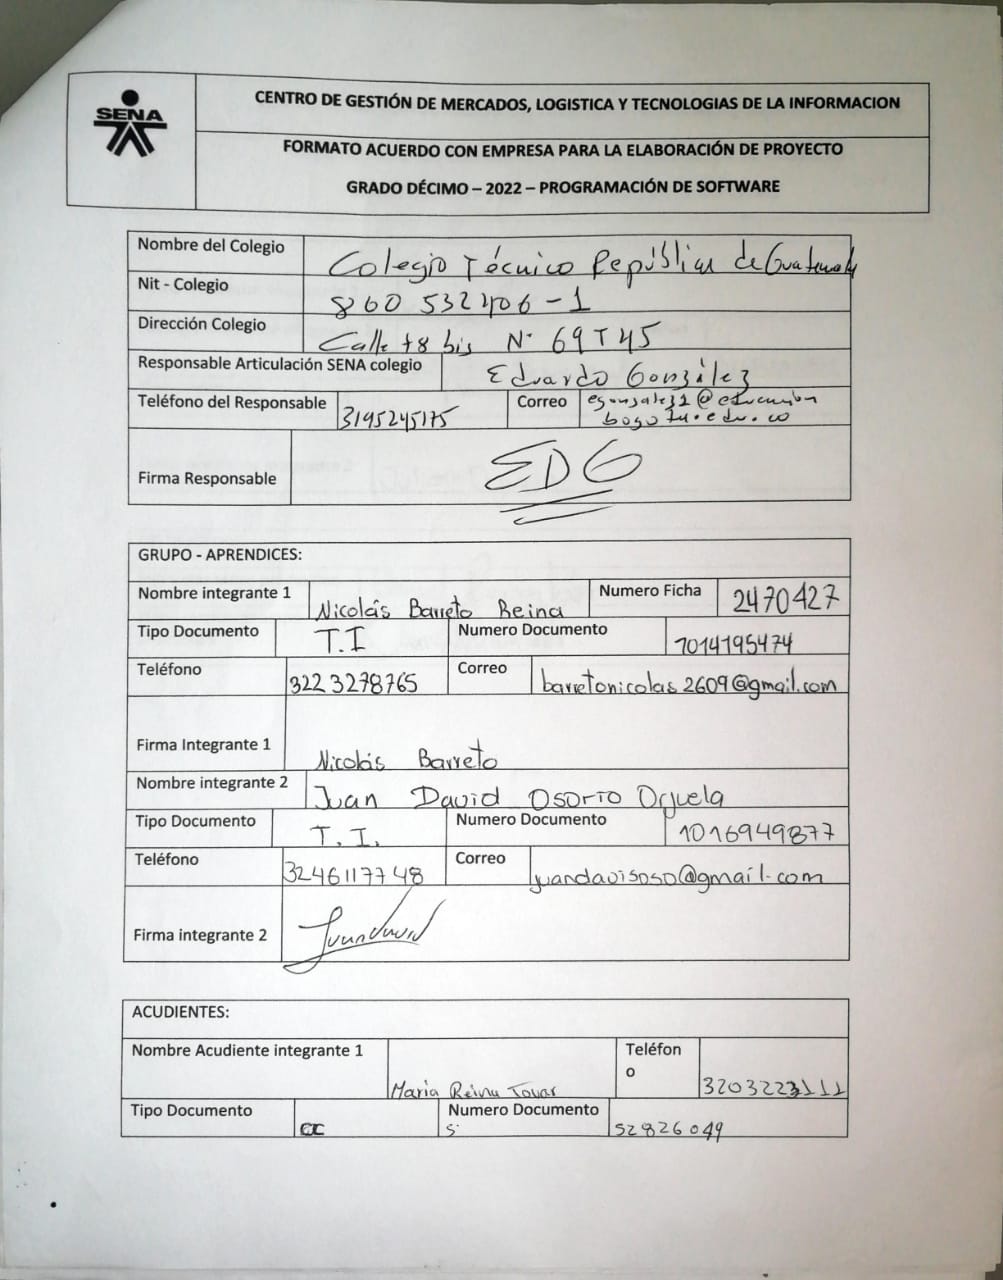 SENA
CENTRO DE GESTIÓN DE MERCADOS, LOGISTICA Y TECNOLOGIAS DE LA INFORMACION
FORMATO ACUERDO CON EMPRESA PARA LA ELABORACIÓN DE PROYECTO
GRADO DÉCIMO – 2022 – PROGRAMACIÓN DE SOFTWARE
Nombre del Colegio Colegio Técnico República de Guatemala
Nit - Colegio 860 532406-1
Dirección Colegio Calle 78 bis N° 69T45
Responsable Articulación SENA colegio Eduardo González
Teléfono del Responsable 3195245175 Correo
Firma Responsable EDG
GRUPO - APRENDICES:
Nombre integrante 1 Nicolás Barreto Reina Numero Ficha 2470427
Tipo Documento T.I Numero Documento 1014195474
Teléfono 322 3278765 Correo barretonicolas2609@gmail.com
Firma Integrante 1 Nicolás Barreto
Nombre integrante 2 Juan David Osorio Orjuela
Tipo Documento T.I. Numero Documento 1016949877
Teléfono 3246117748 Correo juandavisoso@gmail.com
Firma integrante 2 Juandavid
ACUDIENTES:
Nombre Acudiente integrante 1 Maria Reina Tovar Teléfon
o 3203223111
Tipo Documento CC Numero Documento
s 52826049